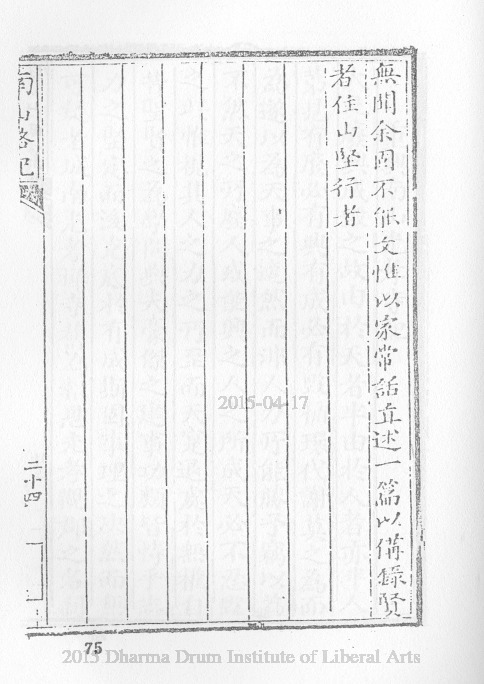 無聞余固不能文惟以家常話直述一篇以備錄賢
者住山堅行者
南山畧記
二十四
75
2015-04-17
2015 Dharma Drum Institute of Liberal Arts